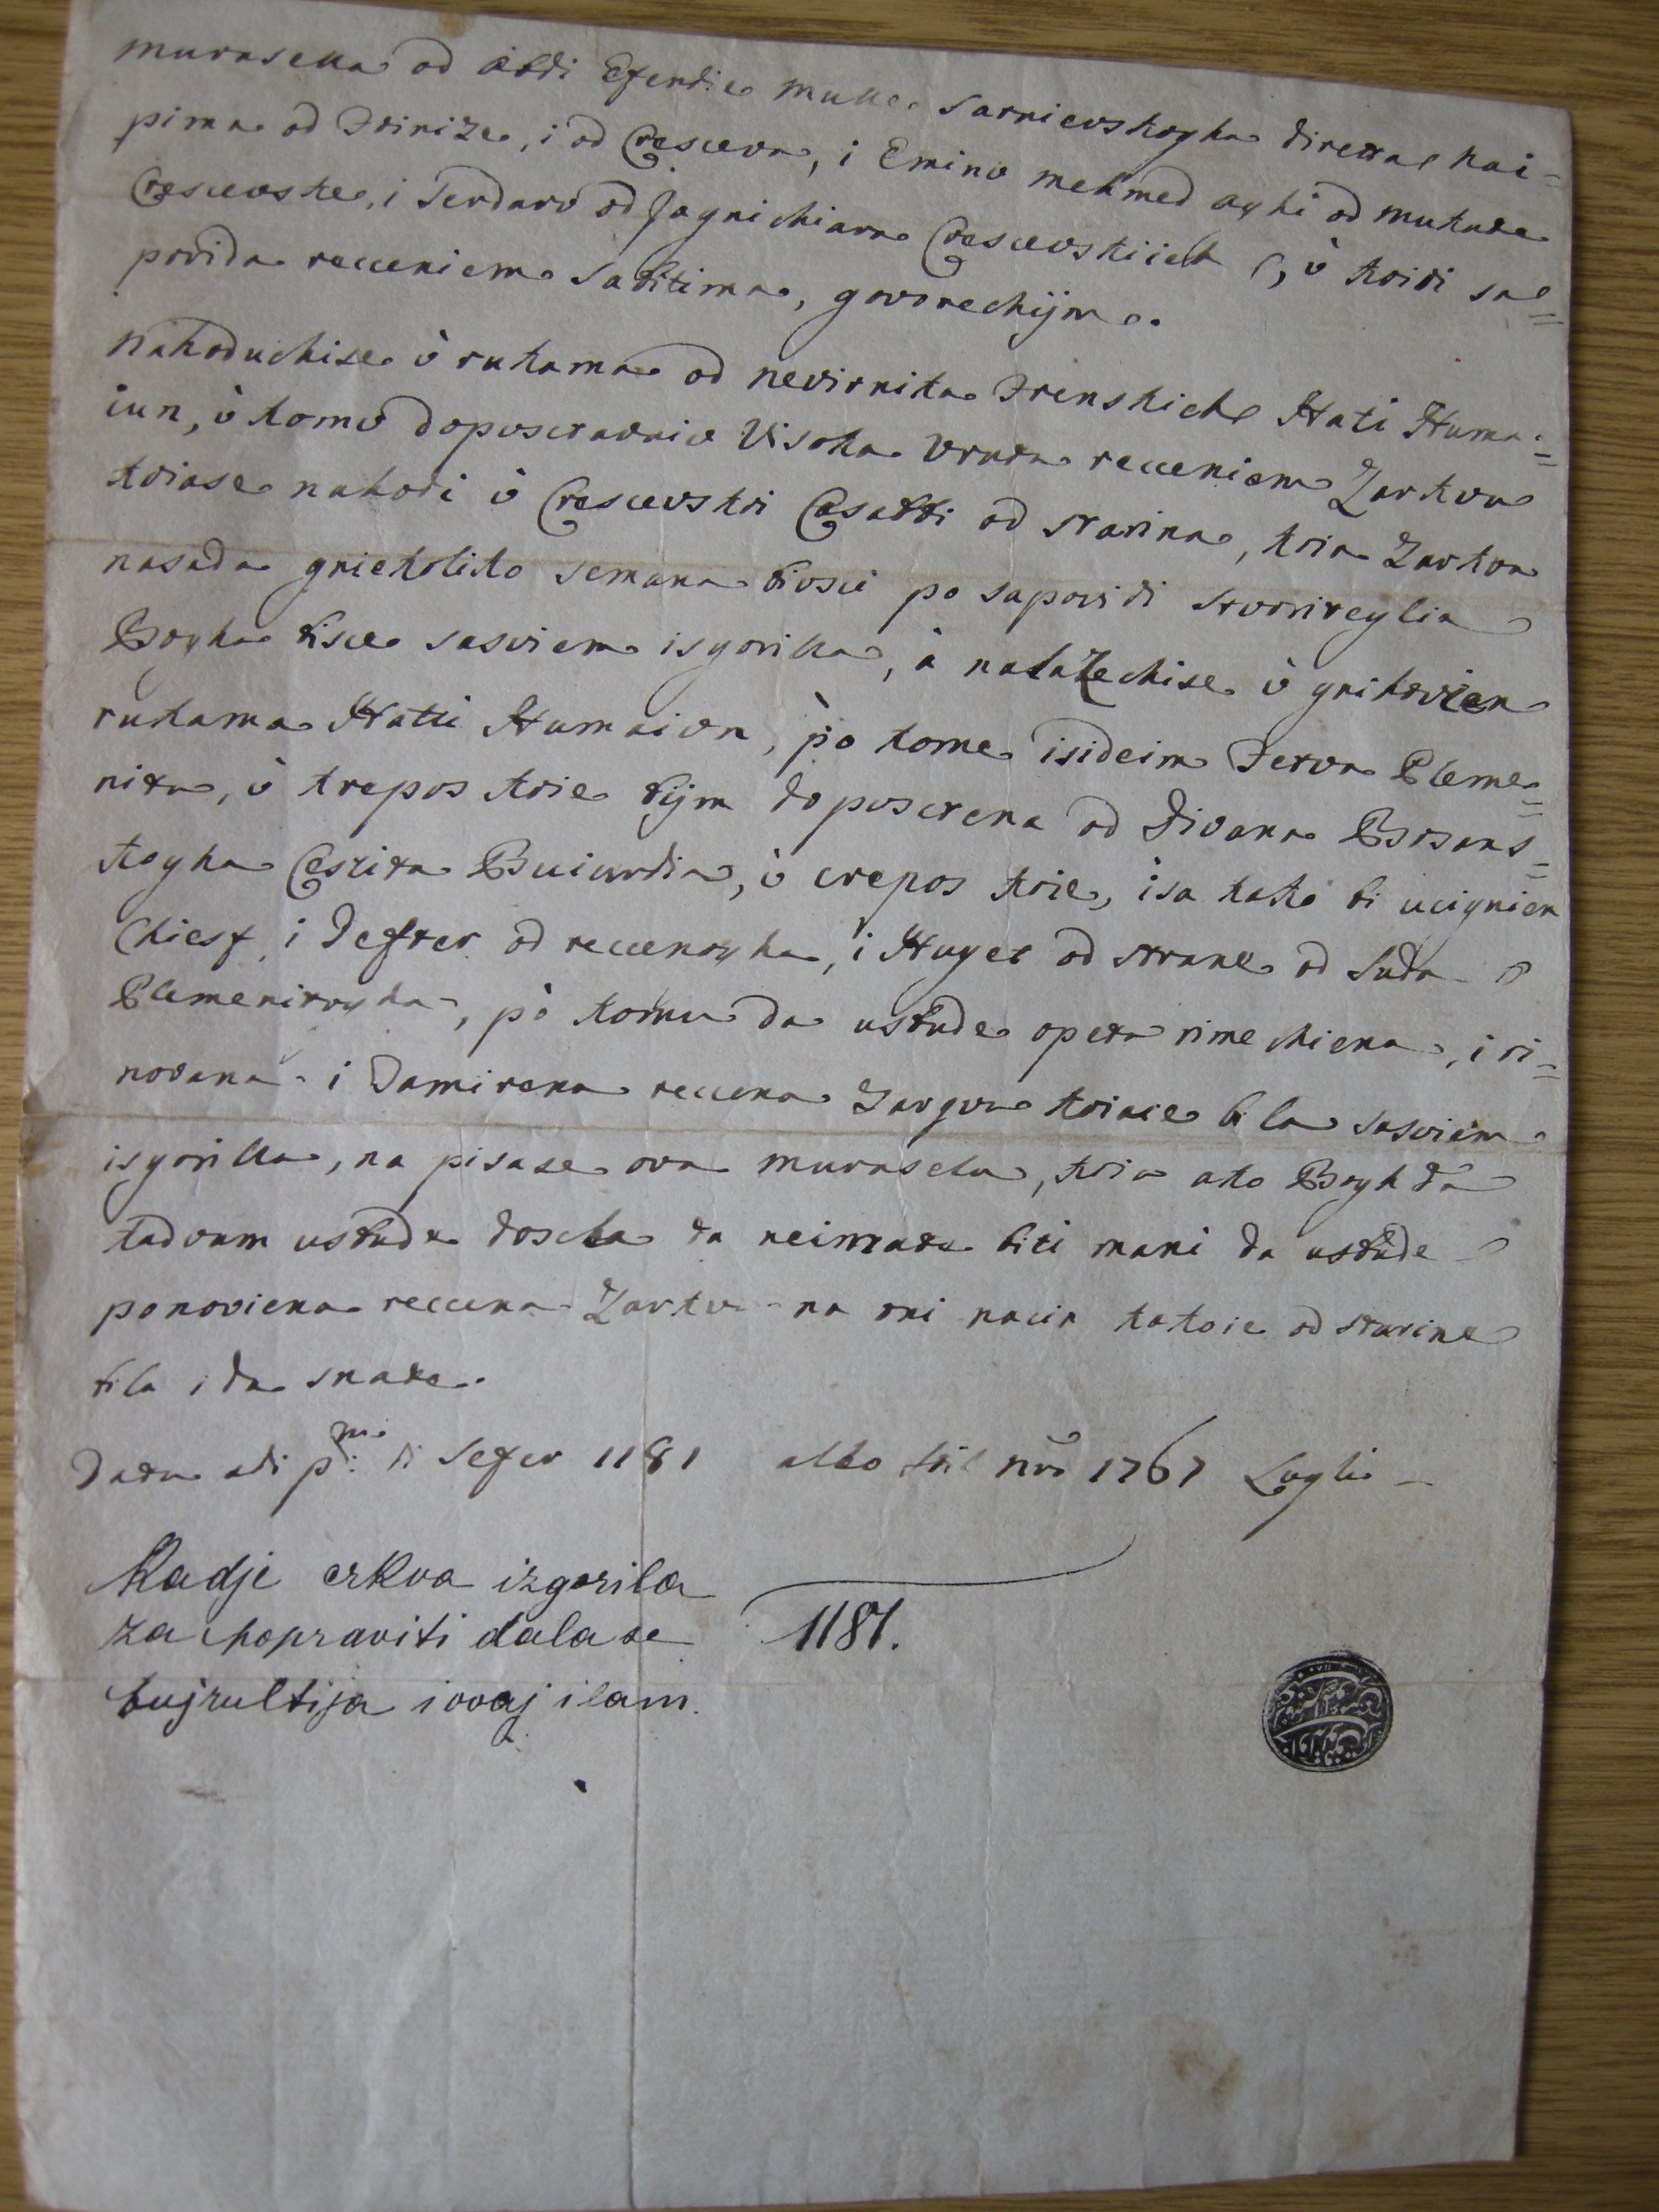 murasella od Abdi Efendie mulle Saraievskogha diretta nai=
pima od Foinize, i od Crescева, i Eminu mehmed aghi od mukate
Crescevske, i Serdaru od Jagnichiara Crescevskiieh, ù koioi sa=
povida recceniem Sabitima, govorechijm.
Nahoduchise ù rukama od nevirnika Frenskich Hati Huma=
iun, ù komu dopuscradaie Visoka Vrata recceniem Zarkva
koiase nahodi ù Crescevskoi Casabbi od starina, koia Zarkva
nasada gniekoliko semana biusci po sapovidi stvoriteglia
Bogha bisce sasviem isgorilla, à nalazechise ù gnihovien
rukama Hatti Humaiun, pò kome isideim Fetva Pleme=
nita, ù krepos koie bijm dopuscrena od Divana Bosans=
kogha Cestita Buiurdia, ù crepos koie, isa kako bi ucignien
Chiesf, i Defter od reccenogha, i Huget od strane od Suda
Plemenitogha, pò komu da usbude opeta rimechiena, i ri=
novana i Tamirena reccena Zarqva koiaie bila sasviem
isgorilla, na pisase ova murasela, koia ako Bogh da
kadvam usbude doscla da neimate biti mani da usbude
ponoviena reccena Zarkva na oni nacin kakoie od starine
bila i da snate.
Data adi p.mo di Sefer 1181 albo stil nro 1767 Luglio
Kadje crkva izgorila
za popraviti dala se 1181.
bujrultija i ovaj ilam.